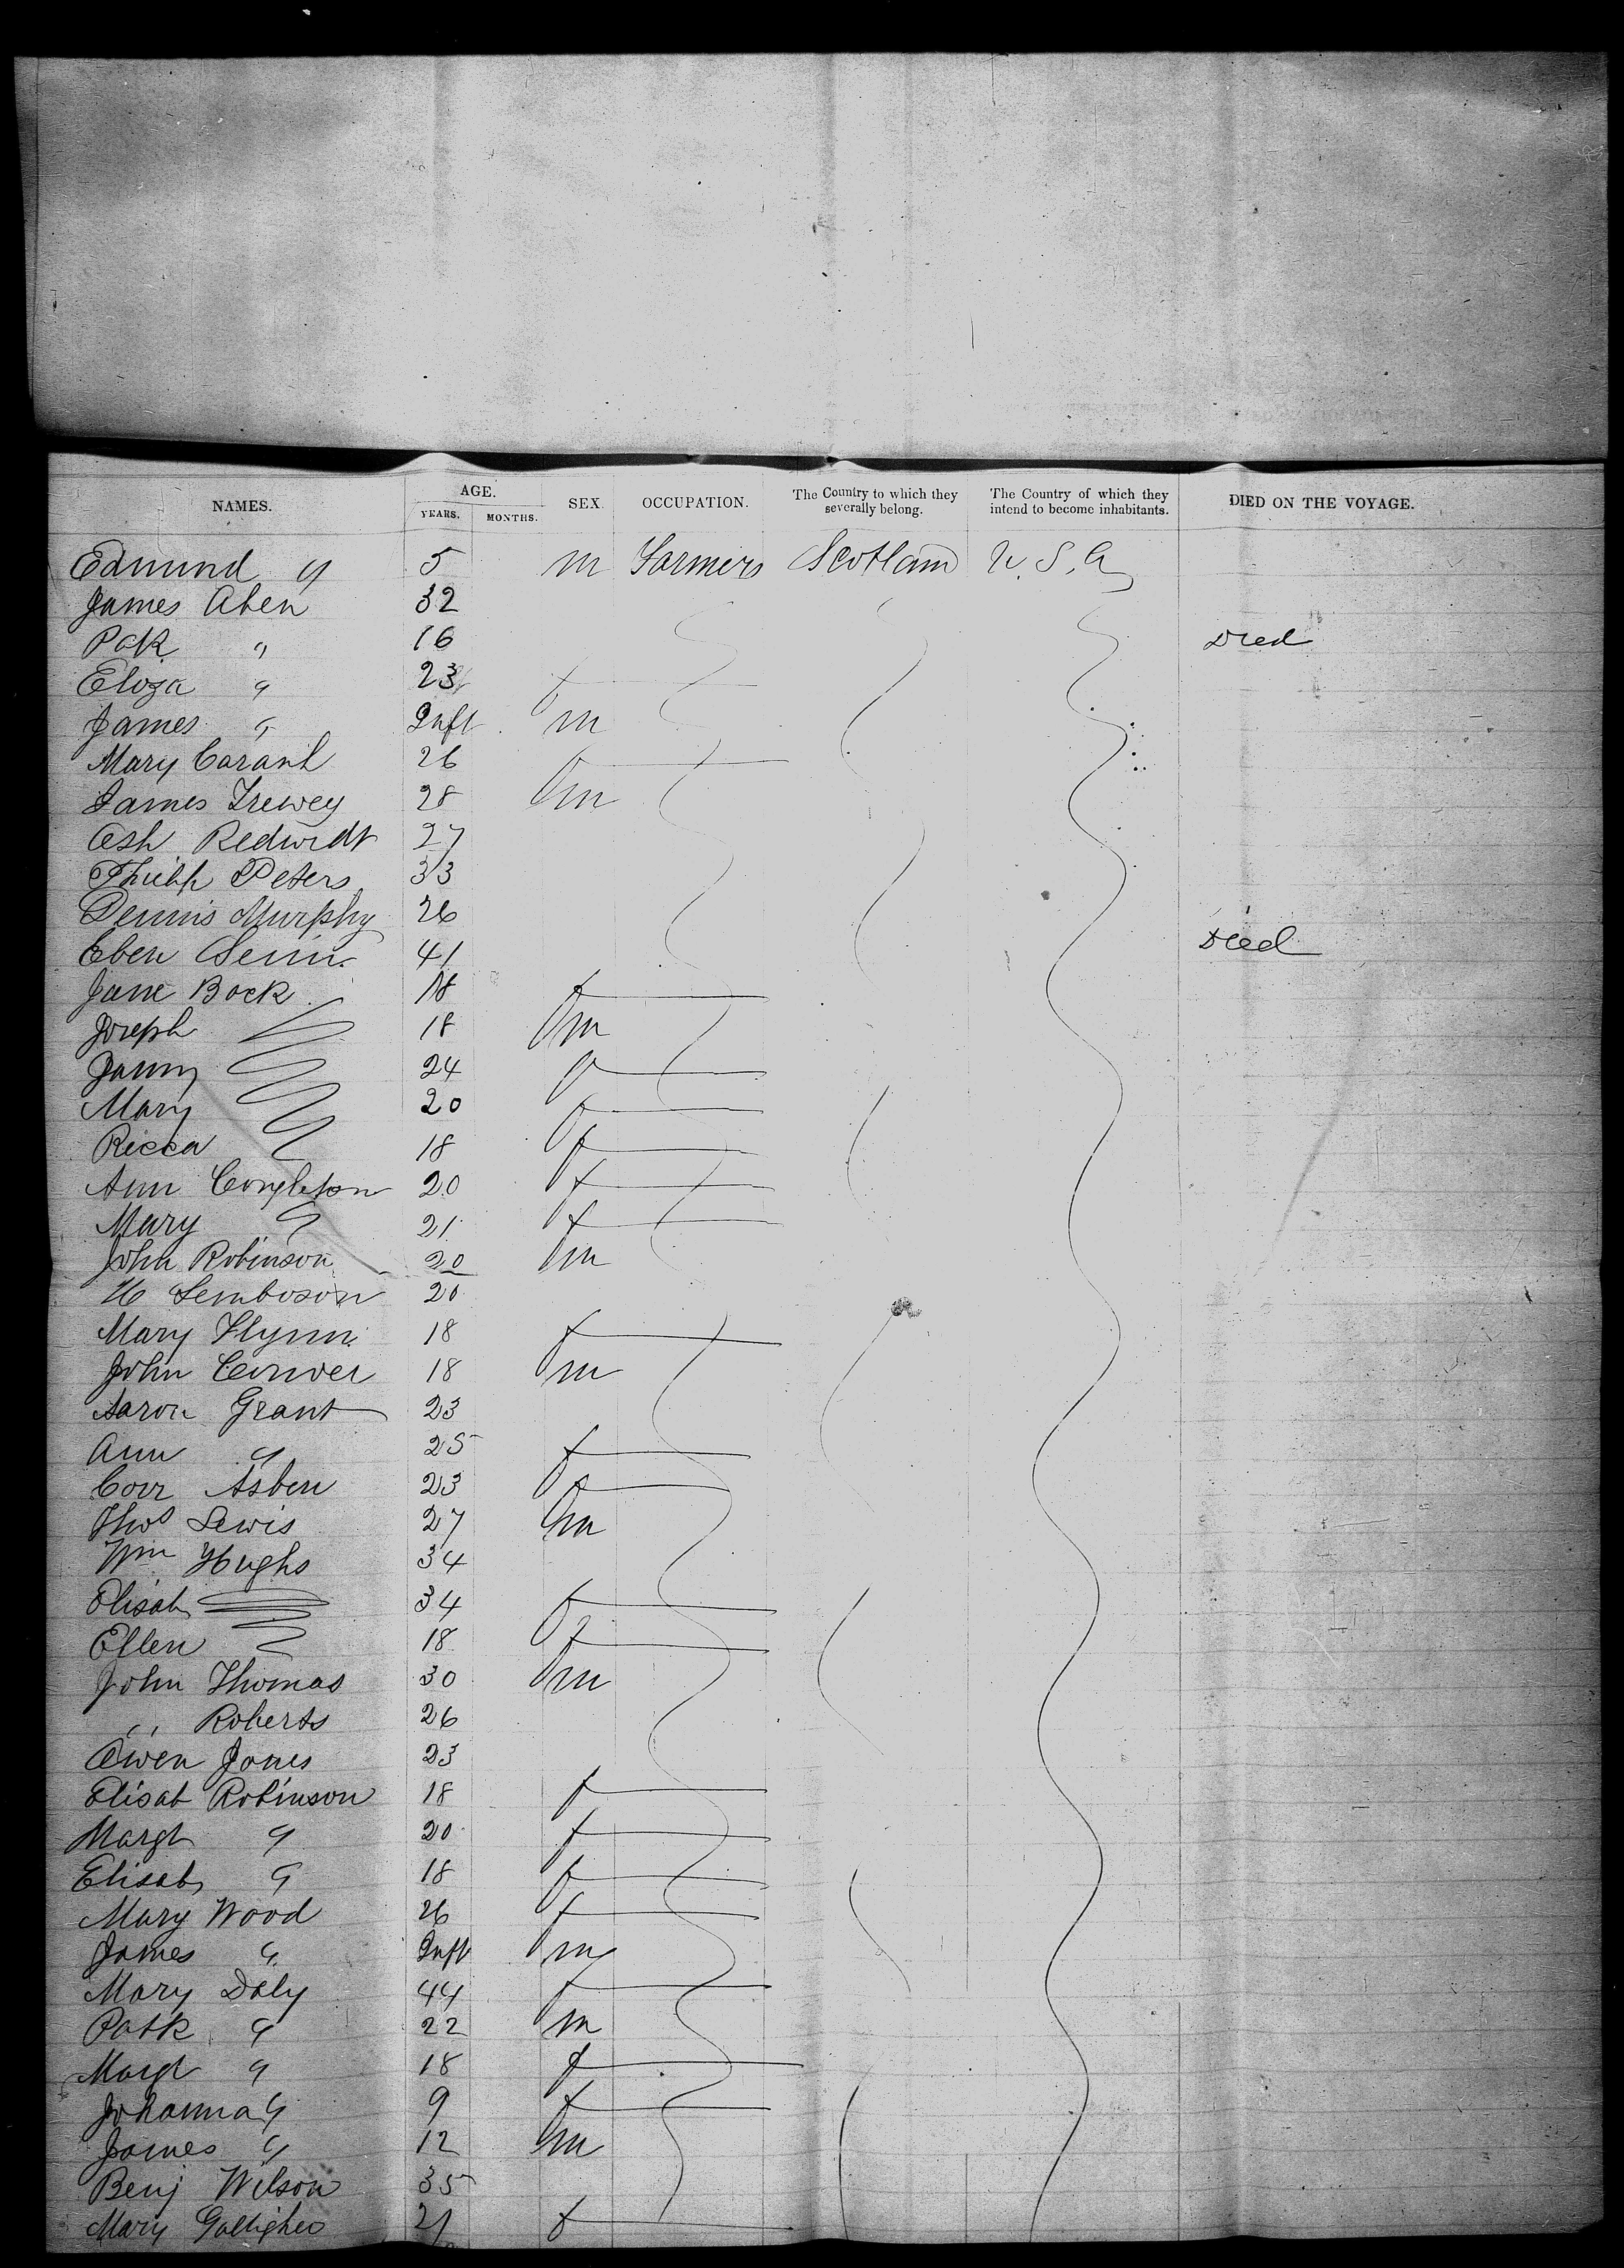 NAMES. AGE. YEARS. MONTHS. SEX. OCCUPATION. The Country to which they severally belong. The Country of which they intend to become inhabitants. DIED ON THE VOYAGE.
Edmund " 5 m Farmers Scotland U.S.A
James Aben 32
Patk " 16 Died
Eliza " 23 f
James " Inft m
Mary 26 f
James Trewey 28 m
27
Philip Peters 33
Dennis Murphy 26
Eben 41 Died
Jane Bock 18 f
Joseph 18 m
Janny 24 f
Mary 20 f
Ricca 18 f
Ann Congleton 20 f
Mary " 21 f
John Robinson 20 m
20
Mary Flynn 18 f
John Conver 18 m
Aaron Grant 23
Ann " 25 f
Asben 23 f
Thos Lewis 27 m
Wm Hughs 34
Elisab 34 f
Ellen 18 f
John Thomas 30 m
" Roberts 26
Owen Jones 23
Elisab Robinson 18 f
Margt " 20 f
Elisab " 18 f
Mary Wood 26 f
James " Inft m
Mary Daly 44 f
Patk " 22 m
Margt " 18 f
Johanna " 9 f
James " 12 m
Benj Wilson 35
Mary 21 f